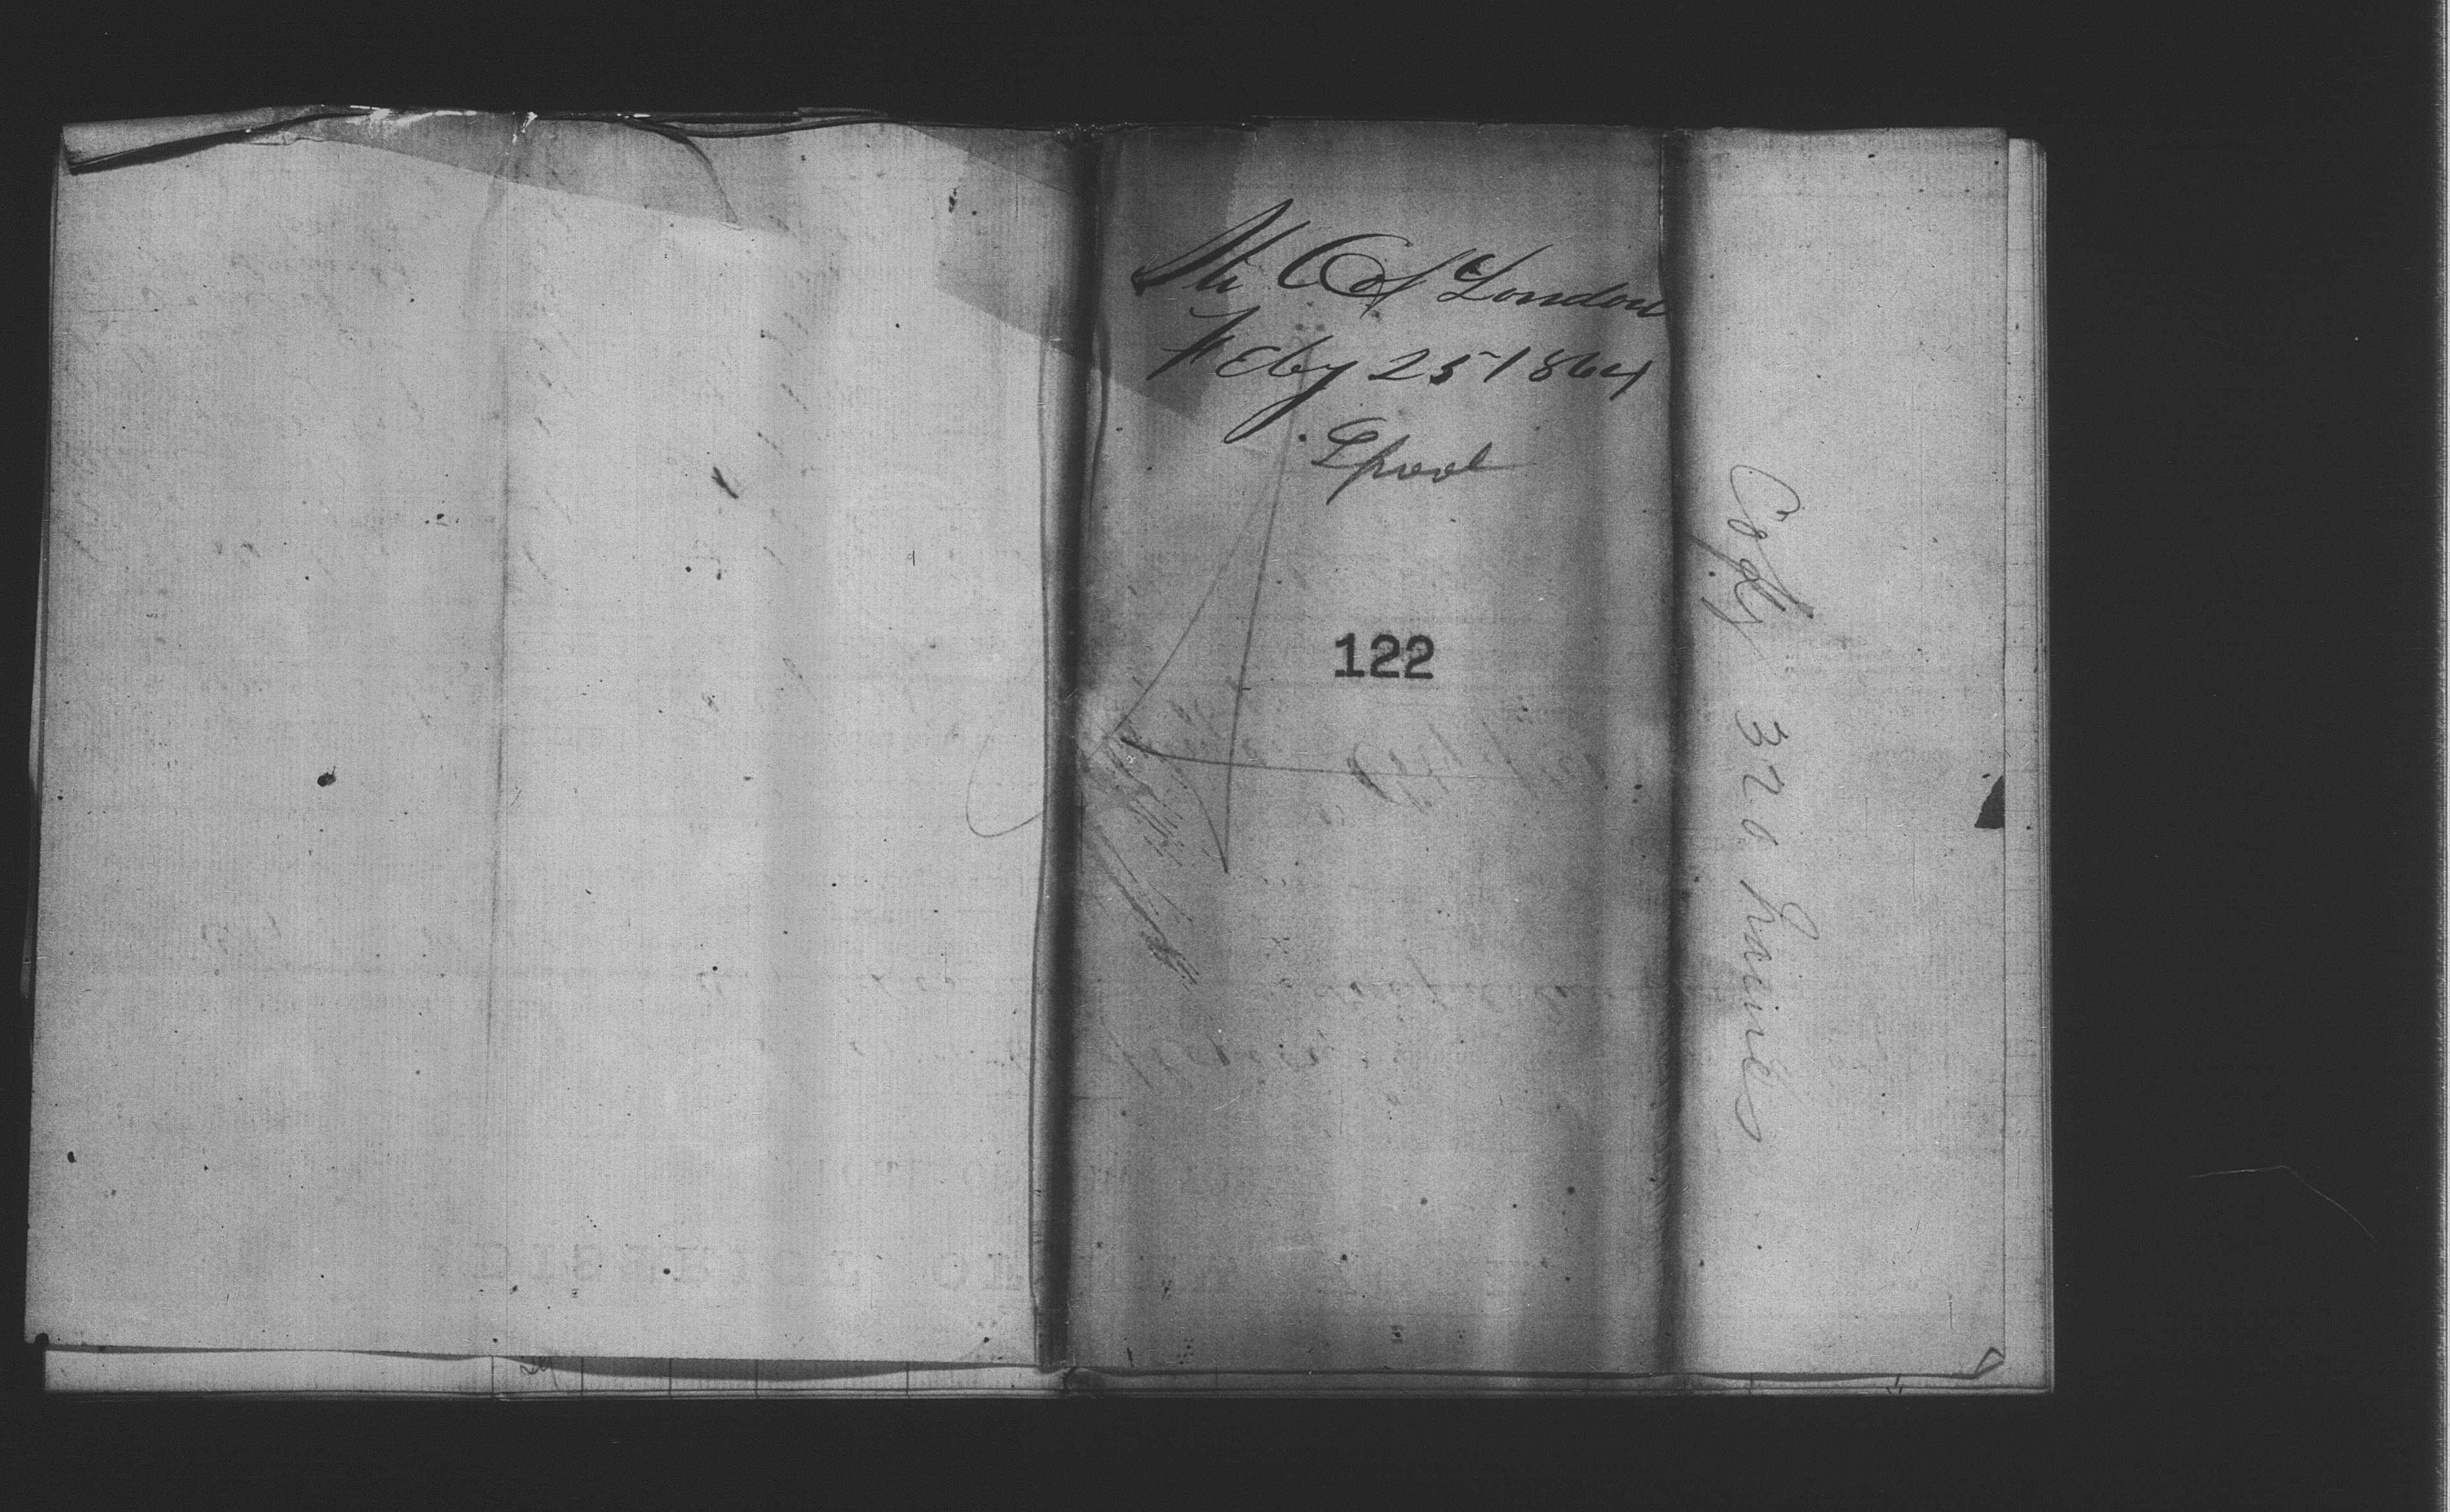 Str C of London
Feby 25 1864
Lpool
122
Copy 320 names